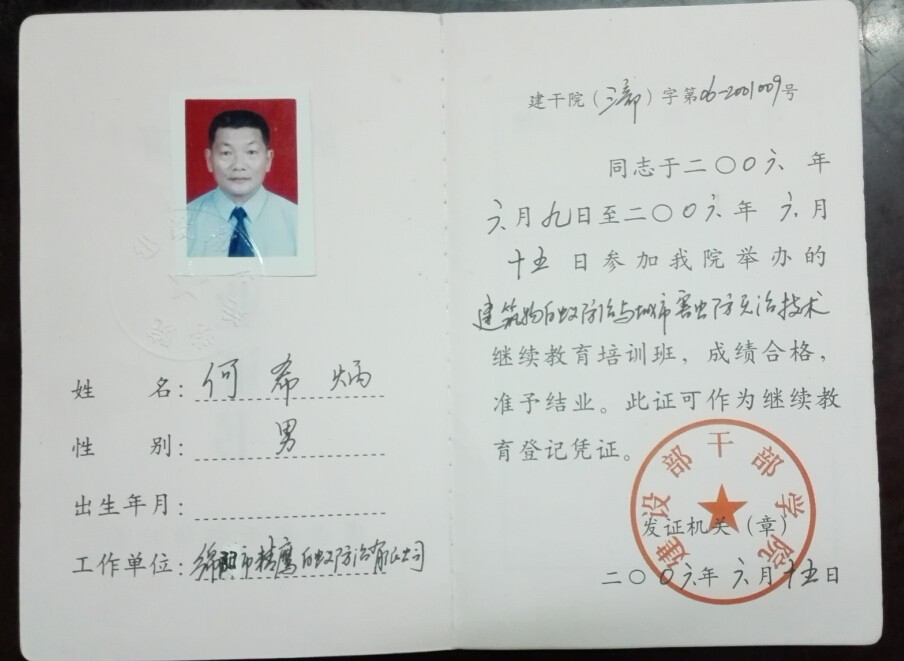 姓 名：何希炳
性 别：男
出生年月：
工作单位：绵阳市精鹰白蚁防治有限公司
建干院（ ）字第06-2001009号
同志于二〇〇六年
六月九日至二〇〇六年六月
十五日参加我院举办的
建筑物白蚁防治与城市害虫防治技术
继续教育培训班，成绩合格，
准予结业。此证可作为继续教
育登记凭证。
建设部干部学院
发证机关（章）
二〇〇六年六月十五日